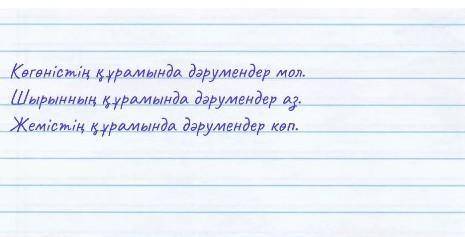 Көгөністің құрамында дәрумендер мол.
Шырынның құрамында дәрумендер аз.
Жемістің құрамында дәрумендер көп.